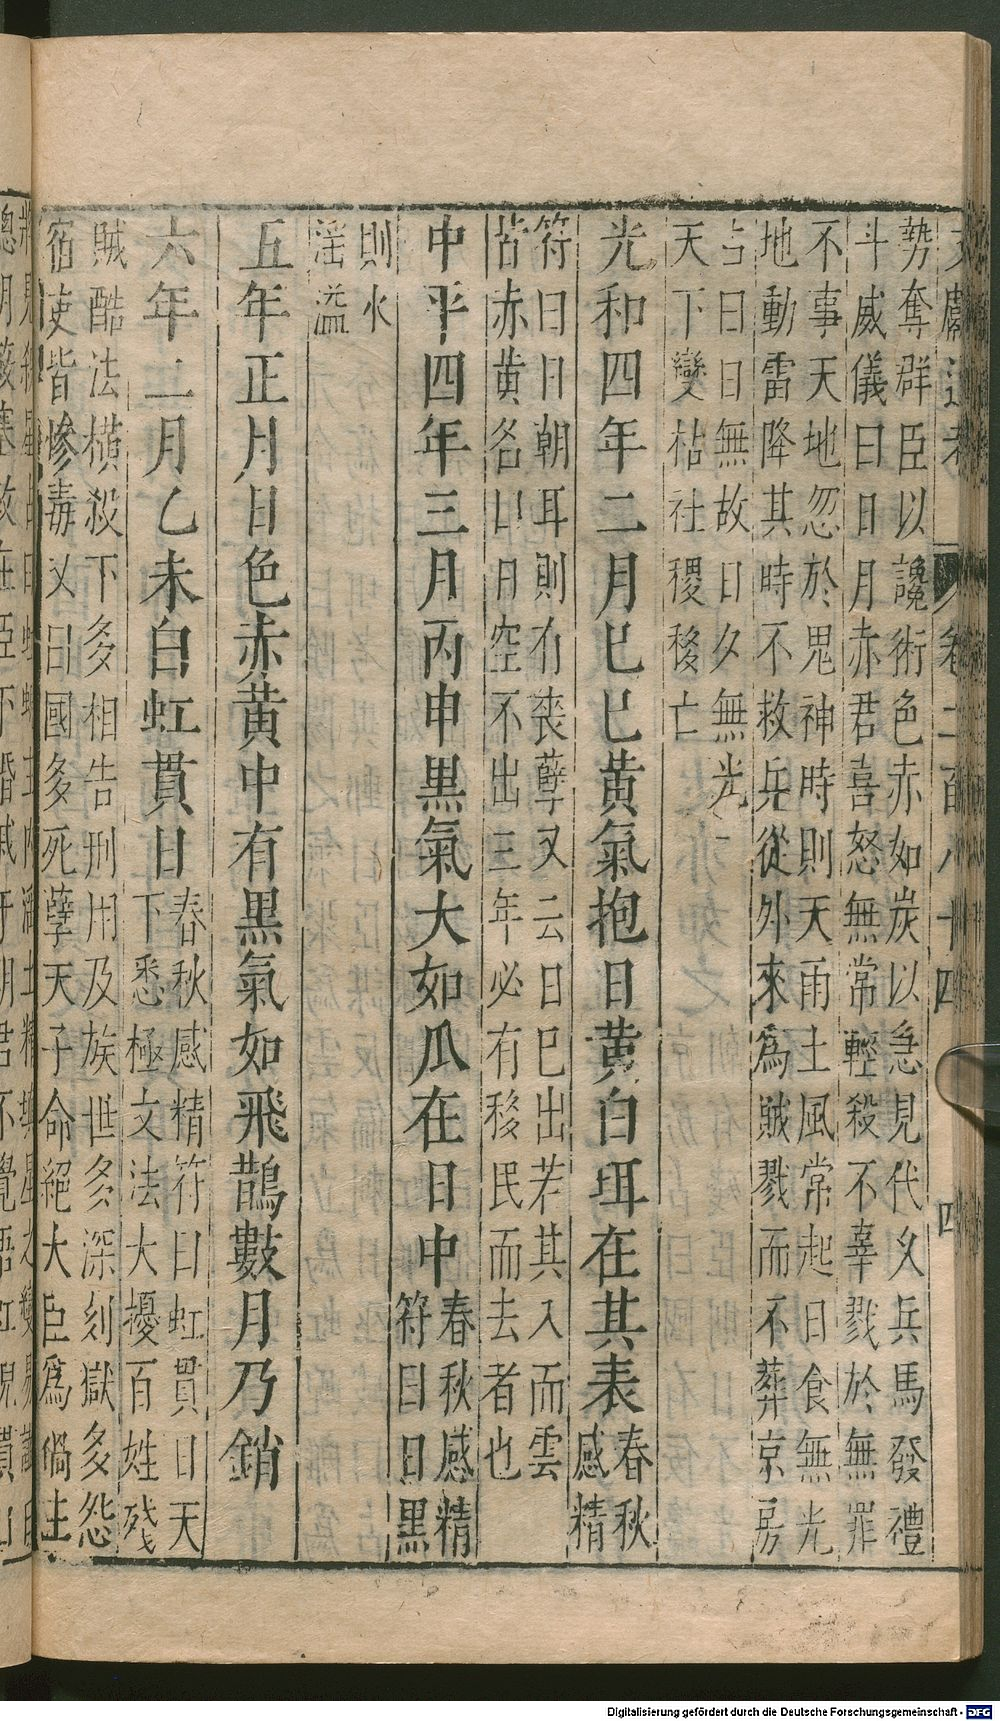 文獻通考 卷二百八十四 四
勢奪群臣以讒術色赤如炭以急見代又兵馬發禮
斗威儀曰日月赤君喜怒無常輕殺不辜戮於無罪
不事天地忽於鬼神時則天雨土風常起日食無光
地動雷降其時不救兵從外來爲賊戮而不葬京房
占曰日無故日夕無光
天下變枯社稷移亡
光和四年二月巳巳黃氣抱日黃白珥在其表
春秋
感精
符曰日朝耳則有喪孽又云日巳出若其入而雲
皆赤黃名曰日空不出三年必有移民而去者也
中平四年三月丙申黑氣大如瓜在日中
春秋感精
符曰日黑
則水
淫溢
五年正月日色赤黃中有黑氣如飛鵲數月乃銷
六年二月乙未白虹貫日
春秋感精符曰虹貫日天
下悉極文法大擾百姓殘
賊酷法橫殺下多相告刑用及族世多深刻獄多怨
宿吏皆慘毒又曰國多死孽天子命絕大臣爲禍主
明蔽塞政在臣下婚戚干朝君不覺悟虹蜺貫日
Digitalisierung gefördert durch die Deutsche Forschungsgemeinschaft - DFG